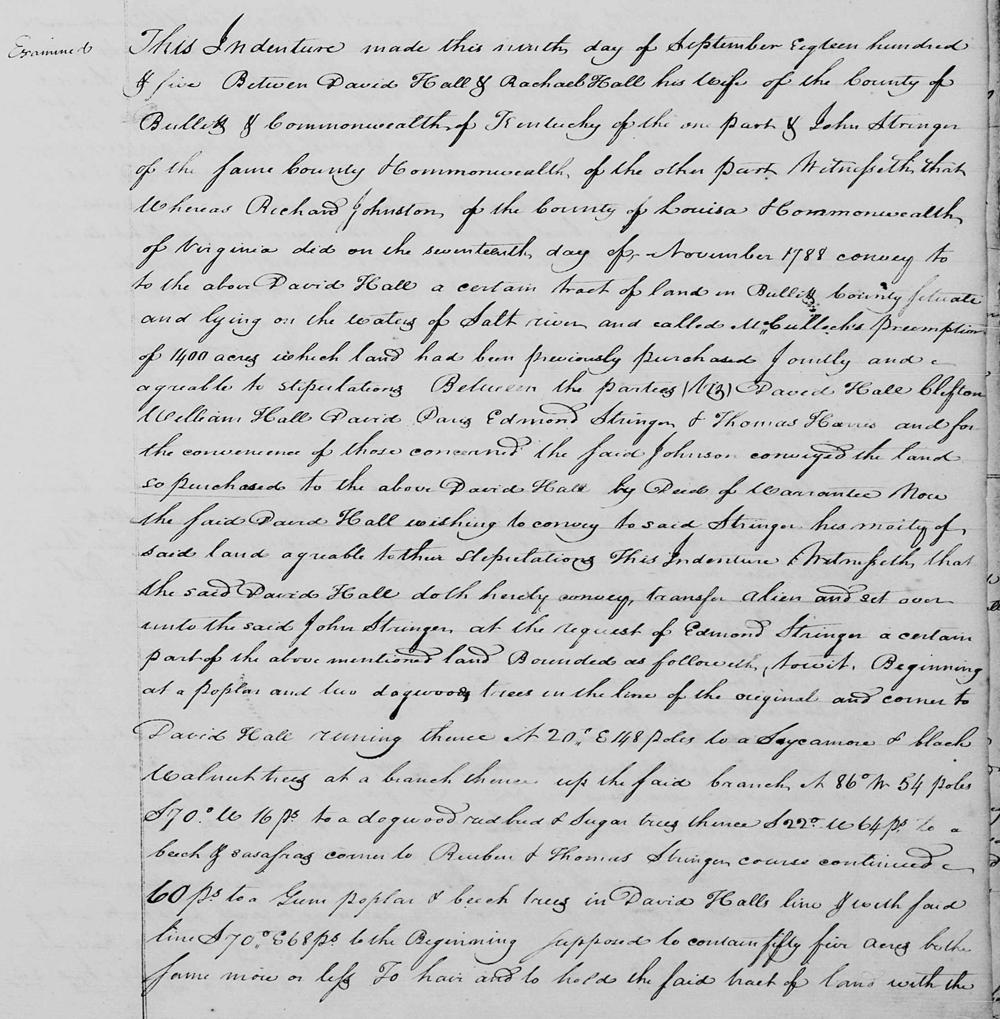 Examined
This Indenture made this ninth day of September Eigteen hundred
& five Between David Hall & Rachael Hall his Wife of the County of
Bullitt & Commonwealth of Kentucky of the one part & John Stringer
of the same County & Commonwealth of the other part Witnesseth that
Whereas Richard Johnston of the County of Louisa & Commonwealth
of Virginia did on the seventeenth day of November 1788 convey to
to the above David Hall a certain tract of land in Bullitt County situate
and lying on the waters of Salt river and called McCulloch's Preemption
of 1400 acres which land had been previously purchased Jointly and
agreable to stipulations Between the parties (Viz) David Hall Clifton
William Hall David Paris Edmond Stringer & Thomas Harris and for
the convenience of those concerned the said Johnson conveyed the land
so purchased to the above David Hall by Deed of Warrantee Now
the said David Hall wishing to convey to said Stringer his moity of
said land agreable to their stipulations This Indenture Witnesseth that
the said David Hall doth hereby convey, transfer alien and set over
unto the said John Stringer at the request of Edmond Stringer a certain
part of the above mentioned land Bounded as followeth, towit, Beginning
at a poplar and two dogwood trees in the line of the original and corner to
David Hall runing thence N 20° E 148 poles to a Sycamore & black
Walnut trees at a branch thence up the said branch N 86° W 54 poles
S 70° W 16 ps to a dogwood redbud & Sugar trees thence S 22° W 64 ps to a
beech & sasafras corner to Reuben & Thomas Stringer course continued
60 ps to a Gum poplar & beech trees in David Halls line & with said
line S 70° E 68 ps to the Beginning supposed to contain fifty five acres be the
same more or less To have and to hold the said tract of land with the